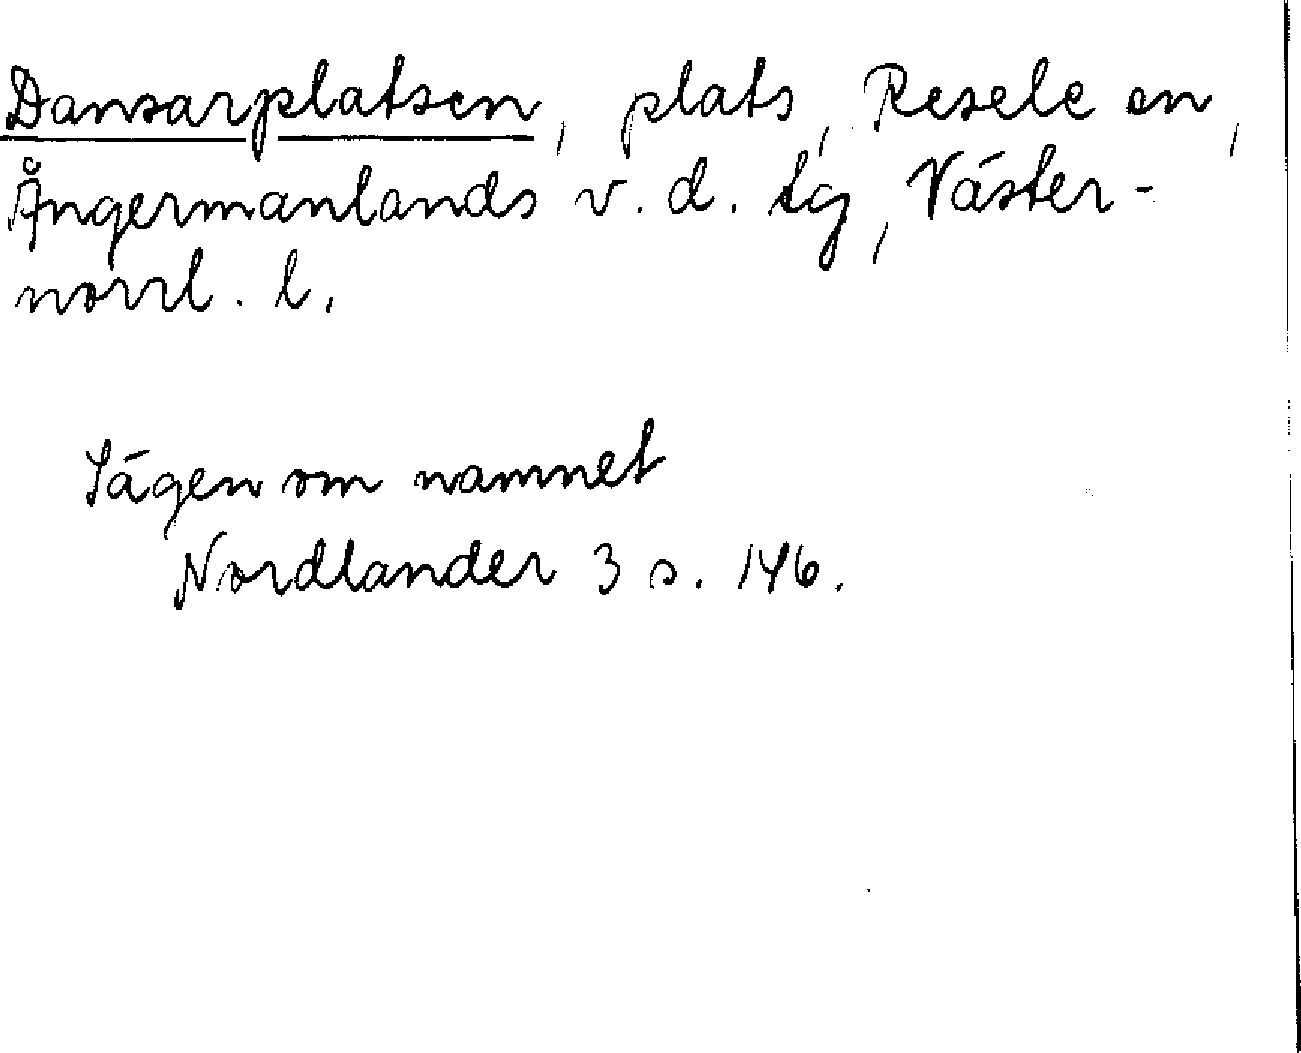 Dansarplatsen, plats, Resele sn,
Ångermanlands v. d. tg, Väster-
norrl. l.
Sägen om namnet
Nordlander 3 s. 146.